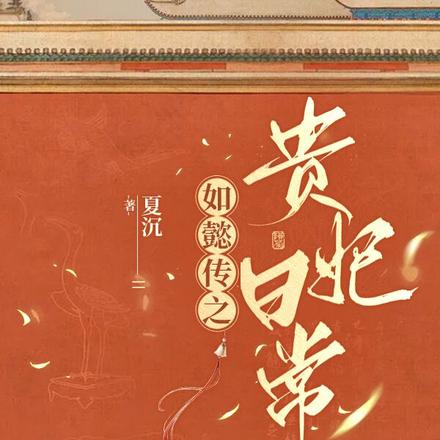 贵妃日常
如懿传之
夏沉
著